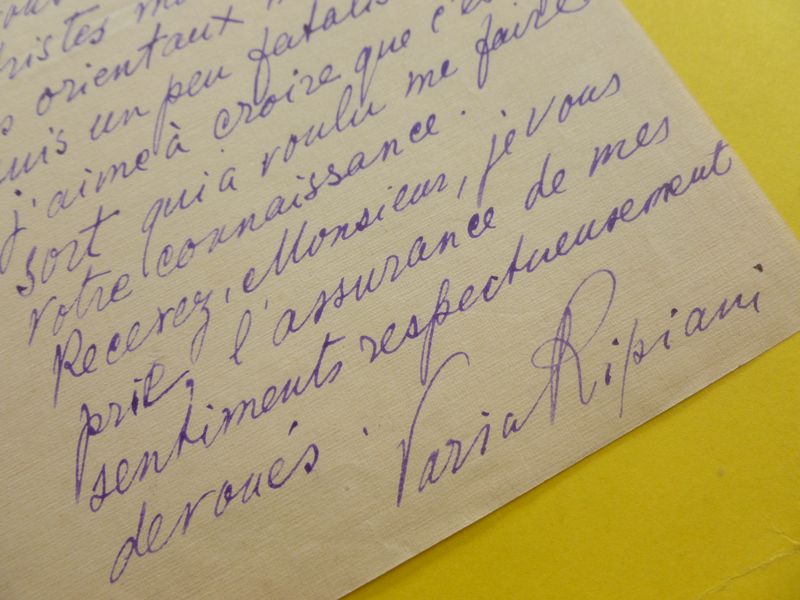 ristes
orientaux
suis un peu fatalis
j'aime à croire que c'es
sort qui a voulu me faire
votre connaissance.
Recevez, Monsieur, je vous
prie, l'assurance de mes
sentiments respectueusement
dévoués.
Varia Kipiani